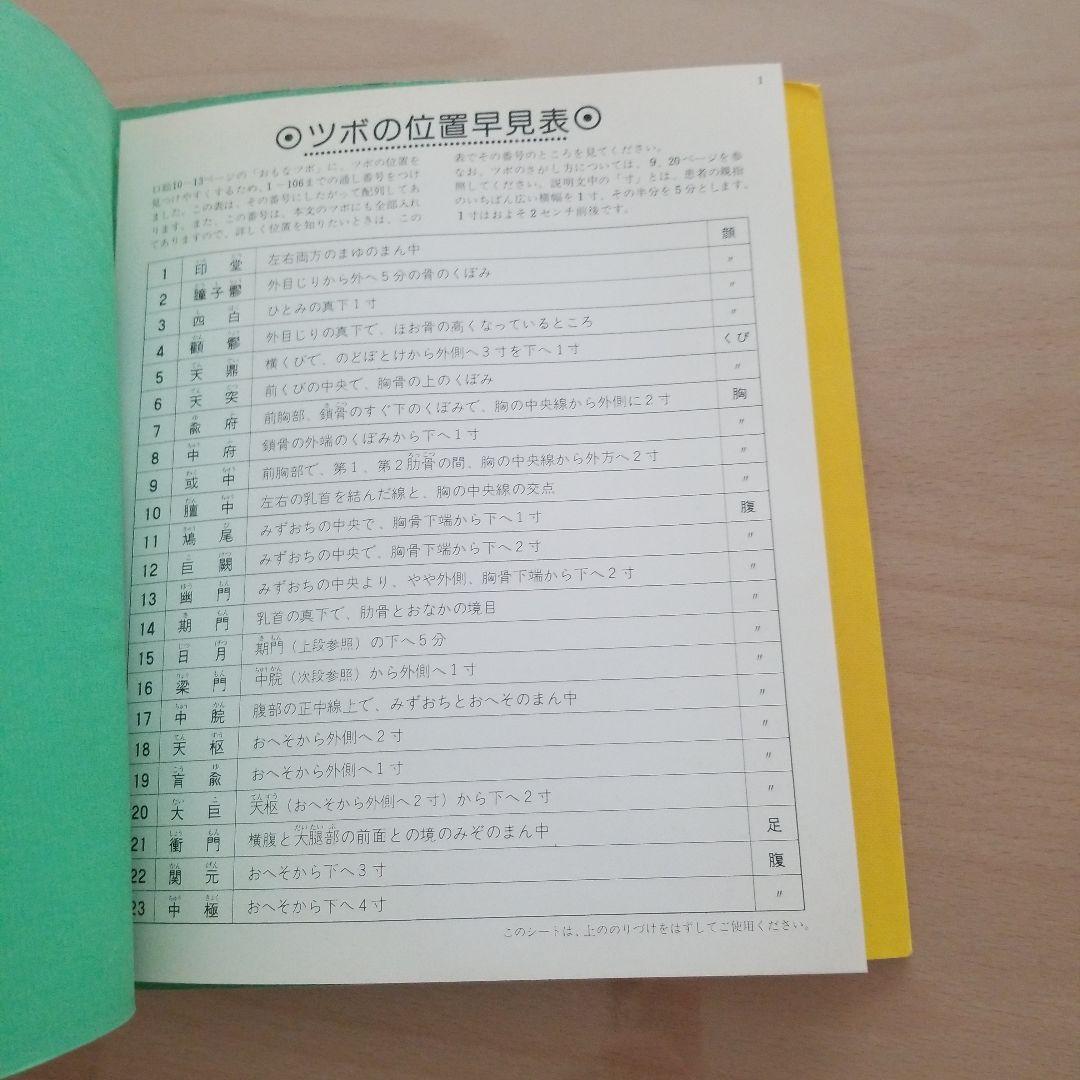 1
ツボの位置早見表
口絵10-13ページの「おもなツボ」に、ツボの位置を
見つけやすくするため、1-106までの通し番号をつけ
ました。この表は、その番号にしたがって配列してあ
ります。また、この番号は、本文のツボにも全部入れ
てありますので、詳しく位置を知りたいときは、この
表でその番号のところを見てください。
なお、ツボのさがし方については、9、20ページを参
照してください。説明文中の「寸」とは、患者の親指
のいちばん広い横幅を1寸、その半分を5分とします。
1寸はおよそ2センチ前後です。
1 印堂 左右両方のまゆのまん中 顔
2 瞳子髎 外目じりから外へ5分の骨のくぼみ 〃
3 四白 ひとみの真下1寸 〃
4 顴髎 外目じりの真下で、ほお骨の高くなっているところ 〃
5 天鼎 横くびで、のどぼとけから外側へ3寸を下へ1寸 くび
6 天突 前くびの中央で、胸骨の上のくぼみ 〃
7 兪府 前胸部、鎖骨のすぐ下のくぼみで、胸の中央線から外側に2寸 胸
8 中府 鎖骨の外端のくぼみから下へ1寸 〃
9 或中 前胸部で、第1、第2肋骨の間、胸の中央線から外方へ2寸 〃
10 膻中 左右の乳首を結んだ線と、胸の中央線の交点 〃
11 鳩尾 みずおちの中央で、胸骨下端から下へ1寸 腹
12 巨闕 みずおちの中央で、胸骨下端から下へ2寸 〃
13 幽門 みずおちの中央より、やや外側、胸骨下端から下へ2寸 〃
14 期門 乳首の真下で、肋骨とおなかの境目 〃
15 日月 期門(上段参照)の下へ5分 〃
16 梁門 中脘(次段参照)から外側へ1寸 〃
17 中脘 腹部の正中線上で、みずおちとおへそのまん中 〃
18 天枢 おへそから外側へ2寸 〃
19 肓兪 おへそから外側へ1寸 〃
20 大巨 天枢(おへそから外側へ2寸)から下へ2寸 〃
21 衝門 横腹と大腿部の前面との境のみぞのまん中 足
22 関元 おへそから下へ3寸 腹
23 中極 おへそから下へ4寸 〃
このシートは、上ののりづけをはずしてご使用ください。